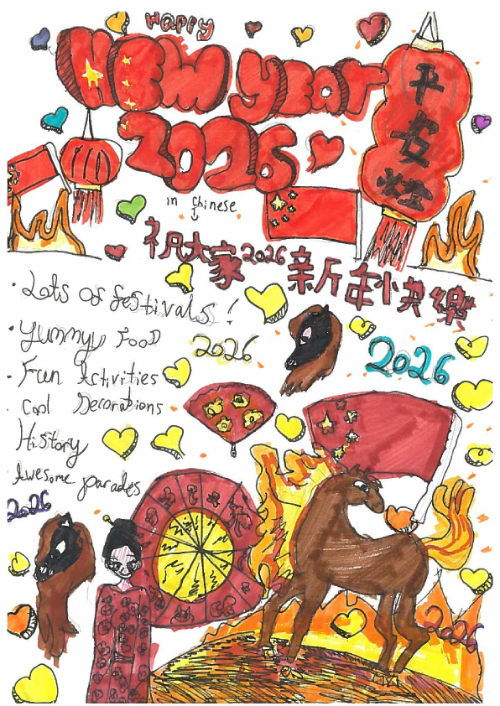 Happy
NEW YEAR
2026
平安燈
in Chinese
祝大家2026新年快樂
• Lots of festivals!
• Yummy Food
2026
2026
• Fun Activities
• Cool Decorations
History
Awesome parades
2026
2026